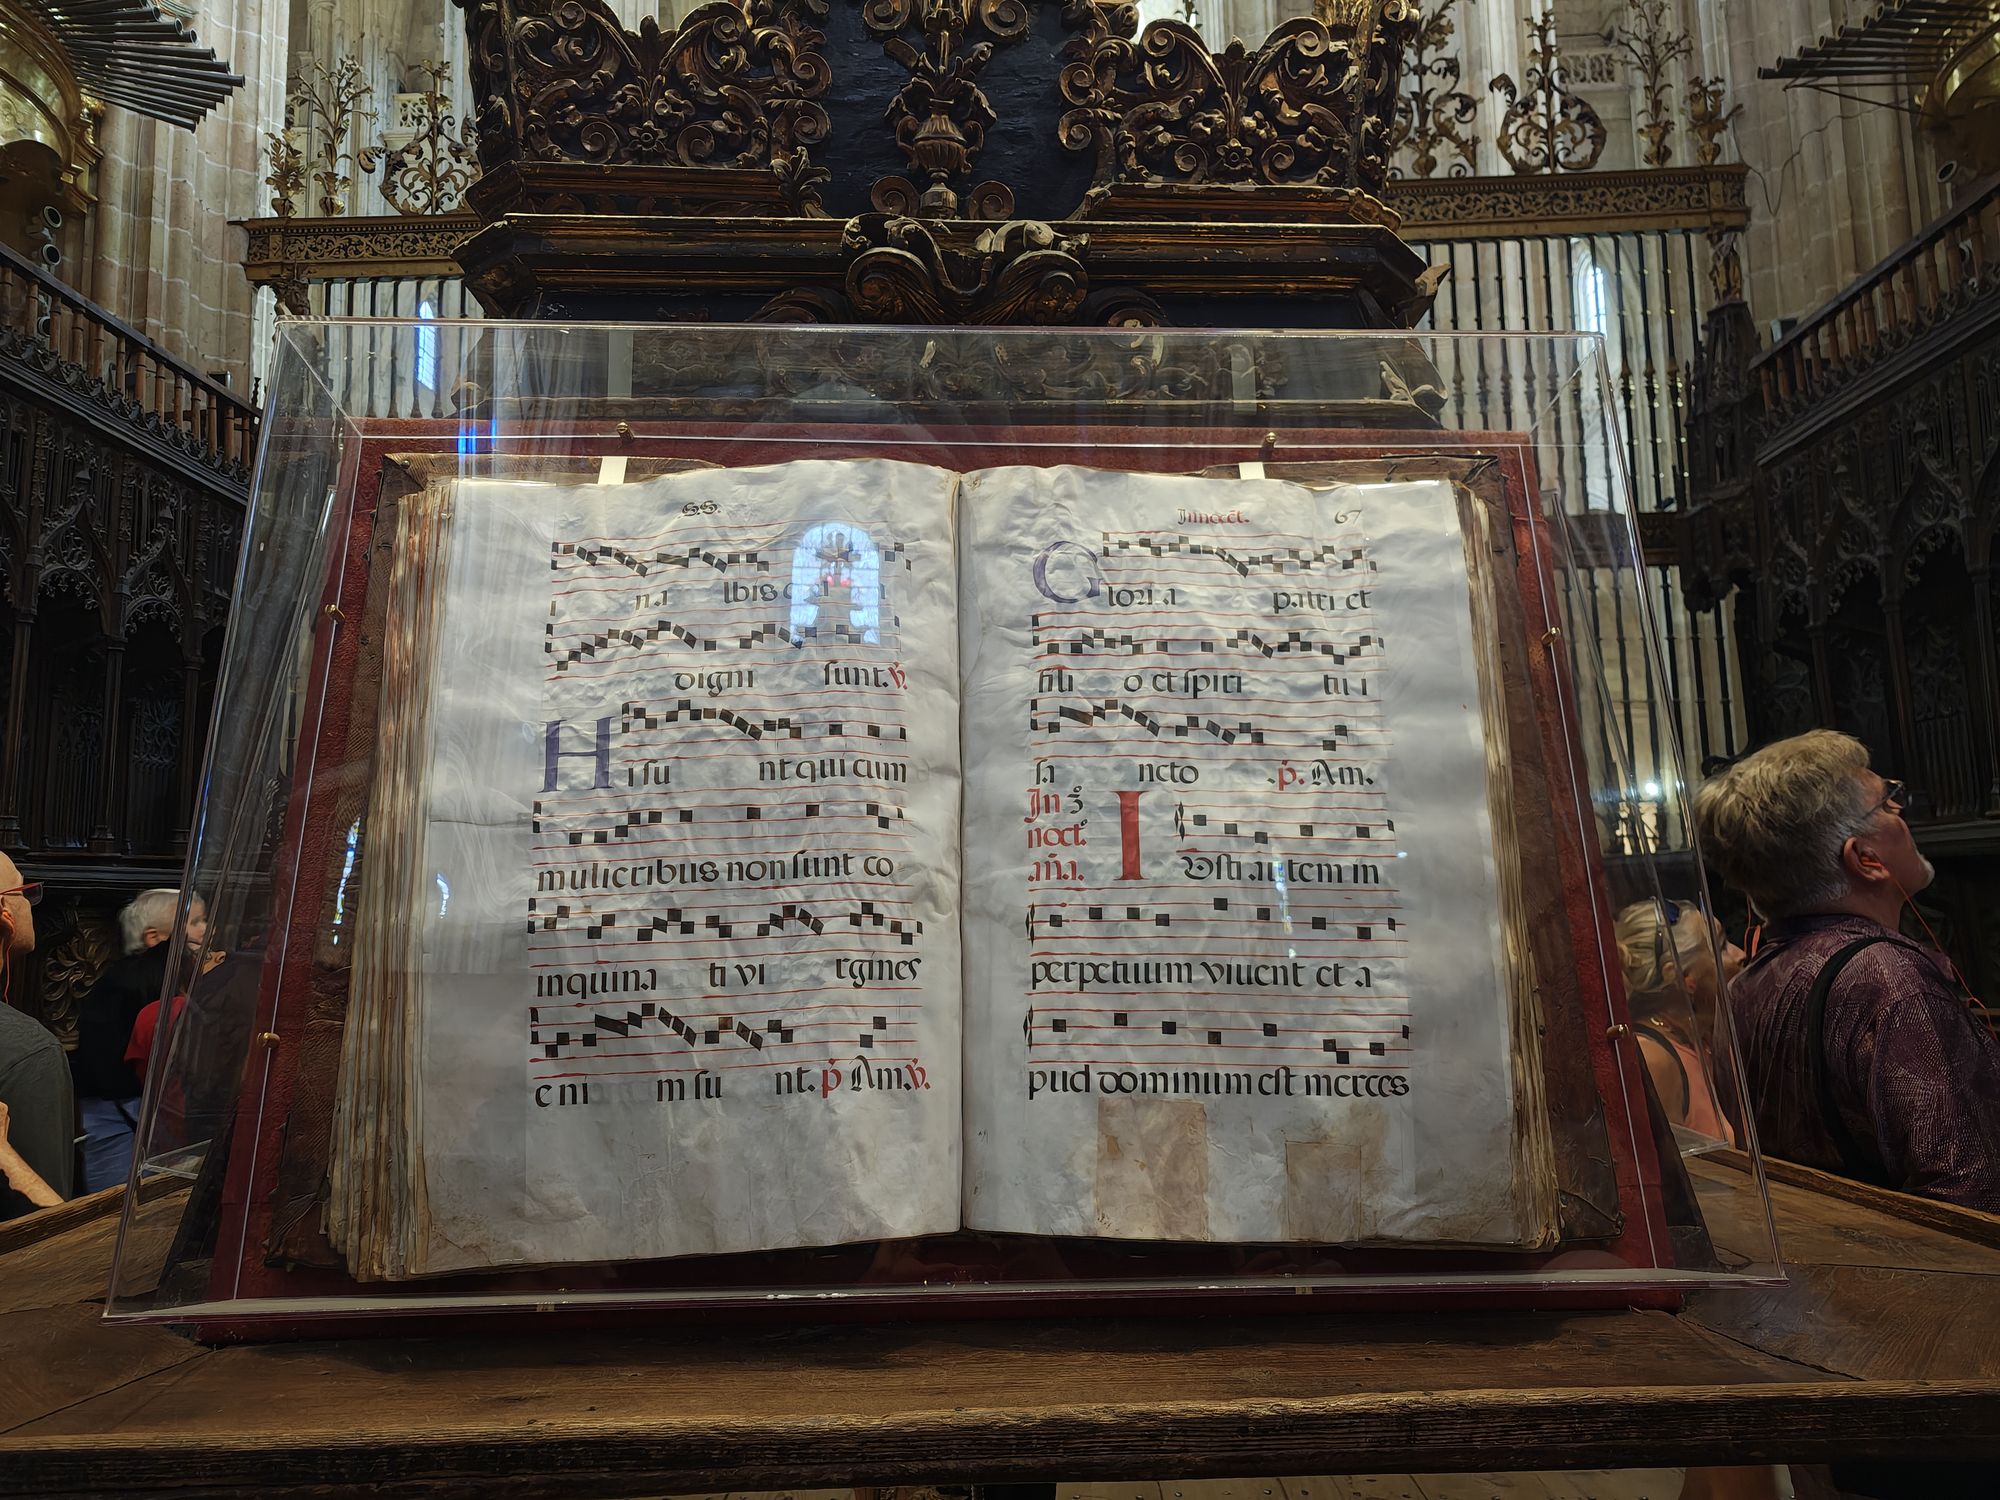 SS.
n a lbis
digni sunt. ℣.
H i su nt qui cum
mulieribus non sunt co
inquina ti vi rgines
e ni m su nt. p Am. ℣.
Innocēt. 67
G lori a patri et
fili o et spiri tu i
sa ncto .p. Am.
In 3º
noct.
aña. I Vsti autem in
perpetuum vivent et a
pud dominum est merces